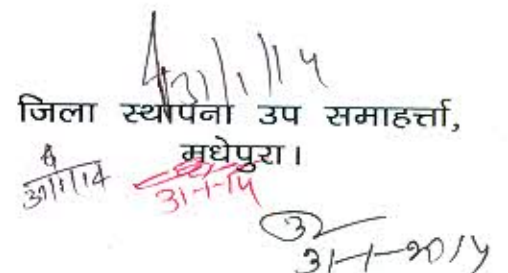 31/1/14
जिला स्थापना उप समाहर्त्ता,
मधेपुरा।
31/1/14
31-1-14
31-1-2014